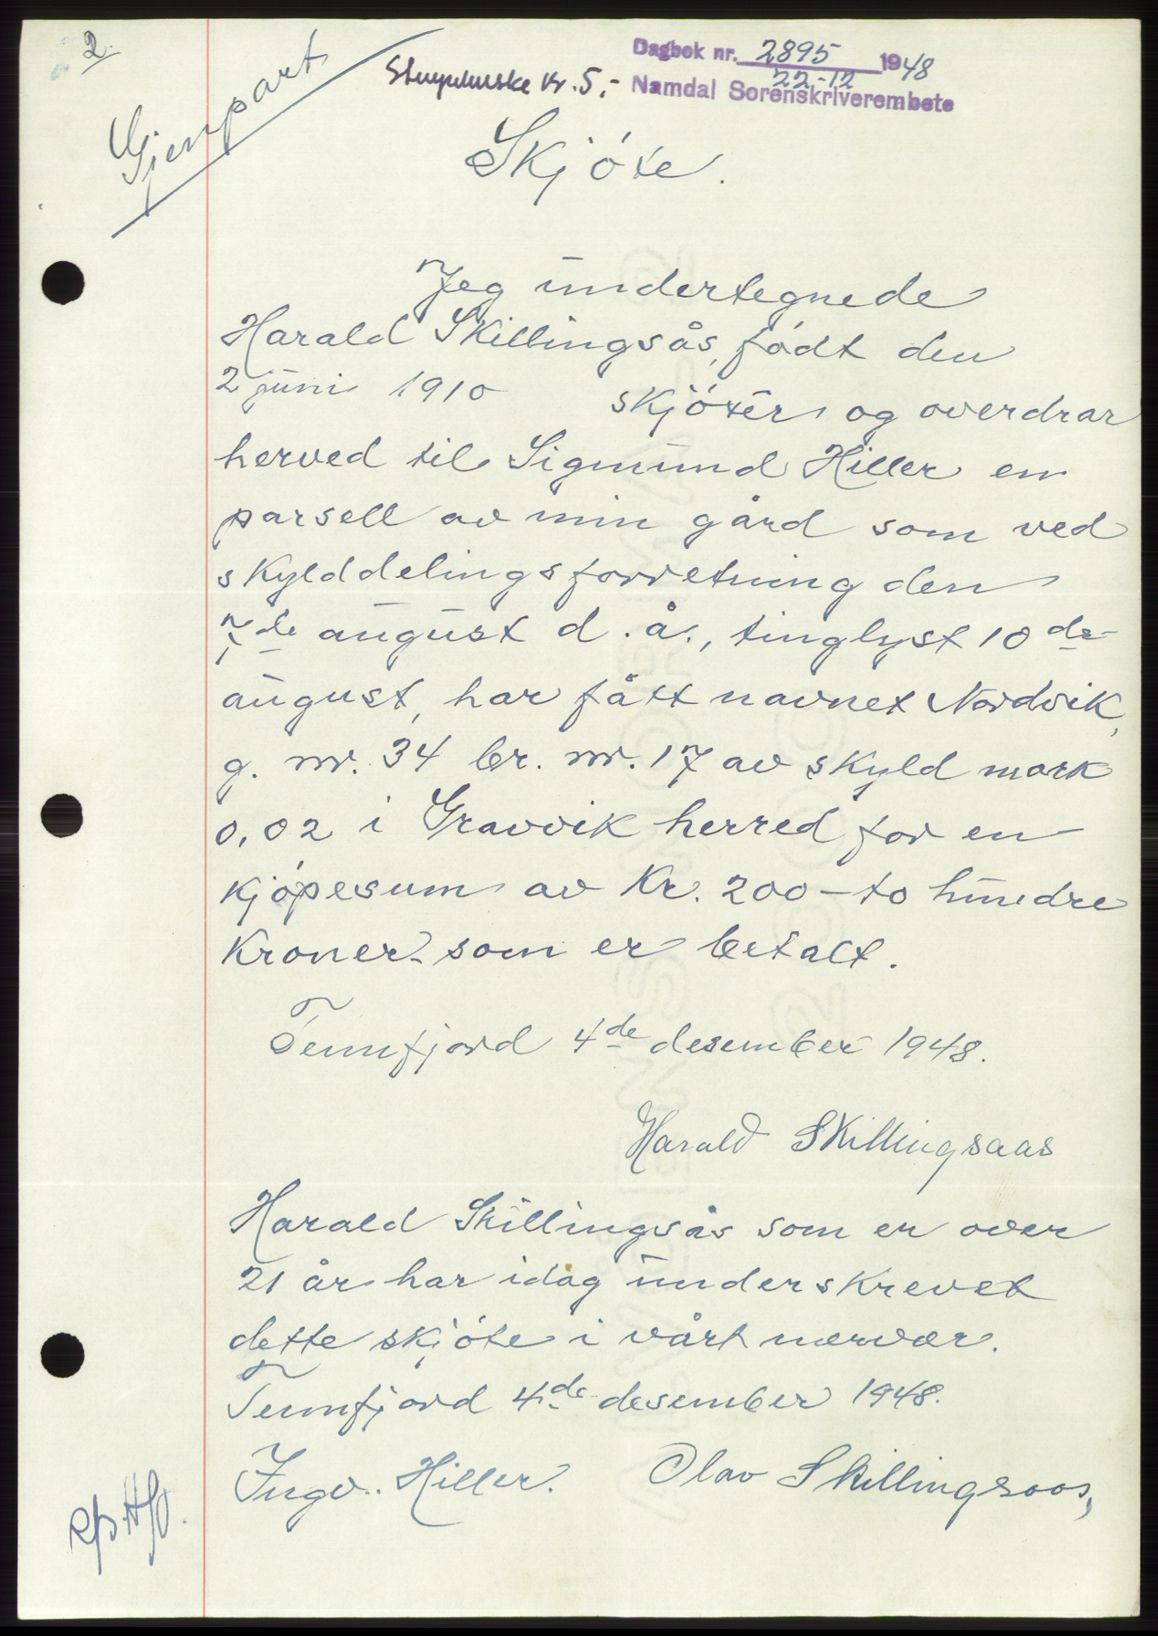 2.
Gjenpart
Dagbok nr. 2895 1948
22-12
Stempelmerke kr. 5,- Namdal Sorenskriverembete
Skjóte.
Jeg undertegnede
Harald Skillingsås, født den
2 juni 1910 skjóter og overdrar
herved til Sigmund Hiller en
parsell av min gård som ved
skylddelingsforretning den
7de august d. å., tinglyst 10de
august, har fått navnet Nordvik,
g. nr. 34 br. nr. 17 av skyld mark
0,02 i Gravvik herred for en
kjópesum av Kr. 200 - to hundre
kroner - som er betalt.
Tennfjord 4de desember 1948.
Harald Skillingsaas
Harald Skillingsås som er over
21 år har idag underskrevet
dette skjóte i vårt nærvær.
Tennfjord 4de desember 1948.
Ingv. Hiller. Olav Skillingsaas,